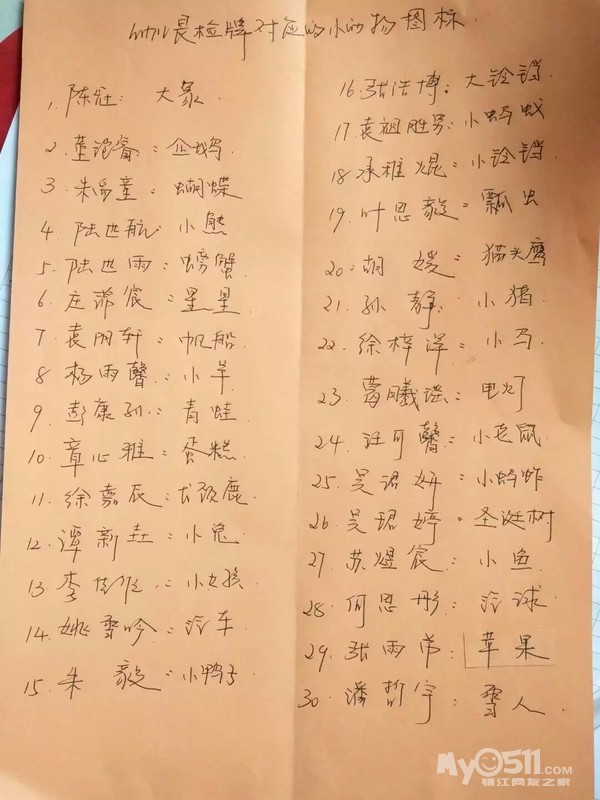 晨检牌对应的小的物图标.
1. 陈钰: 大象.
2. 董滟睿: 企鹅.
3 朱奕童: 蝴蝶
4. 陆世航: 小熊
5. 陆世雨: 螃蟹
6. 庄沛宸: 星星.
7 袁朋轩: 帆船.
8 杨雨馨: 小羊
9. 彭康孙: 青蛙.
10. 章心雅: 蛋糕.
11. 徐嘉辰: 长颈鹿.
12. 谭新垚: 小兔.
13. 李: 小女孩.
14. 姚雪吟: 汽车
15. 朱毅: 小鸭子
16. 张浩博: 大铃铛.
17 袁祖胜男: 小蚂蚁
18. 承雅焜: 小铃铛
19. 叶思毅: 瓢虫
20: 胡婕: 猫头鹰
21. 孙静: 小猪.
22. 徐梓洋: 小马.
23. 葛曦谣: 电灯
24. 汪可馨: 小老鼠.
25. 吴珺妍: 小蚂蚱
26. 吴珺婷: 圣诞树
27. 苏煜宸: 小鱼.
28. 何思彤: 汽球.
29. 张雨芾: 苹果
30. 潘哲宇: 雪人.
My0511.com
镇江网友之家